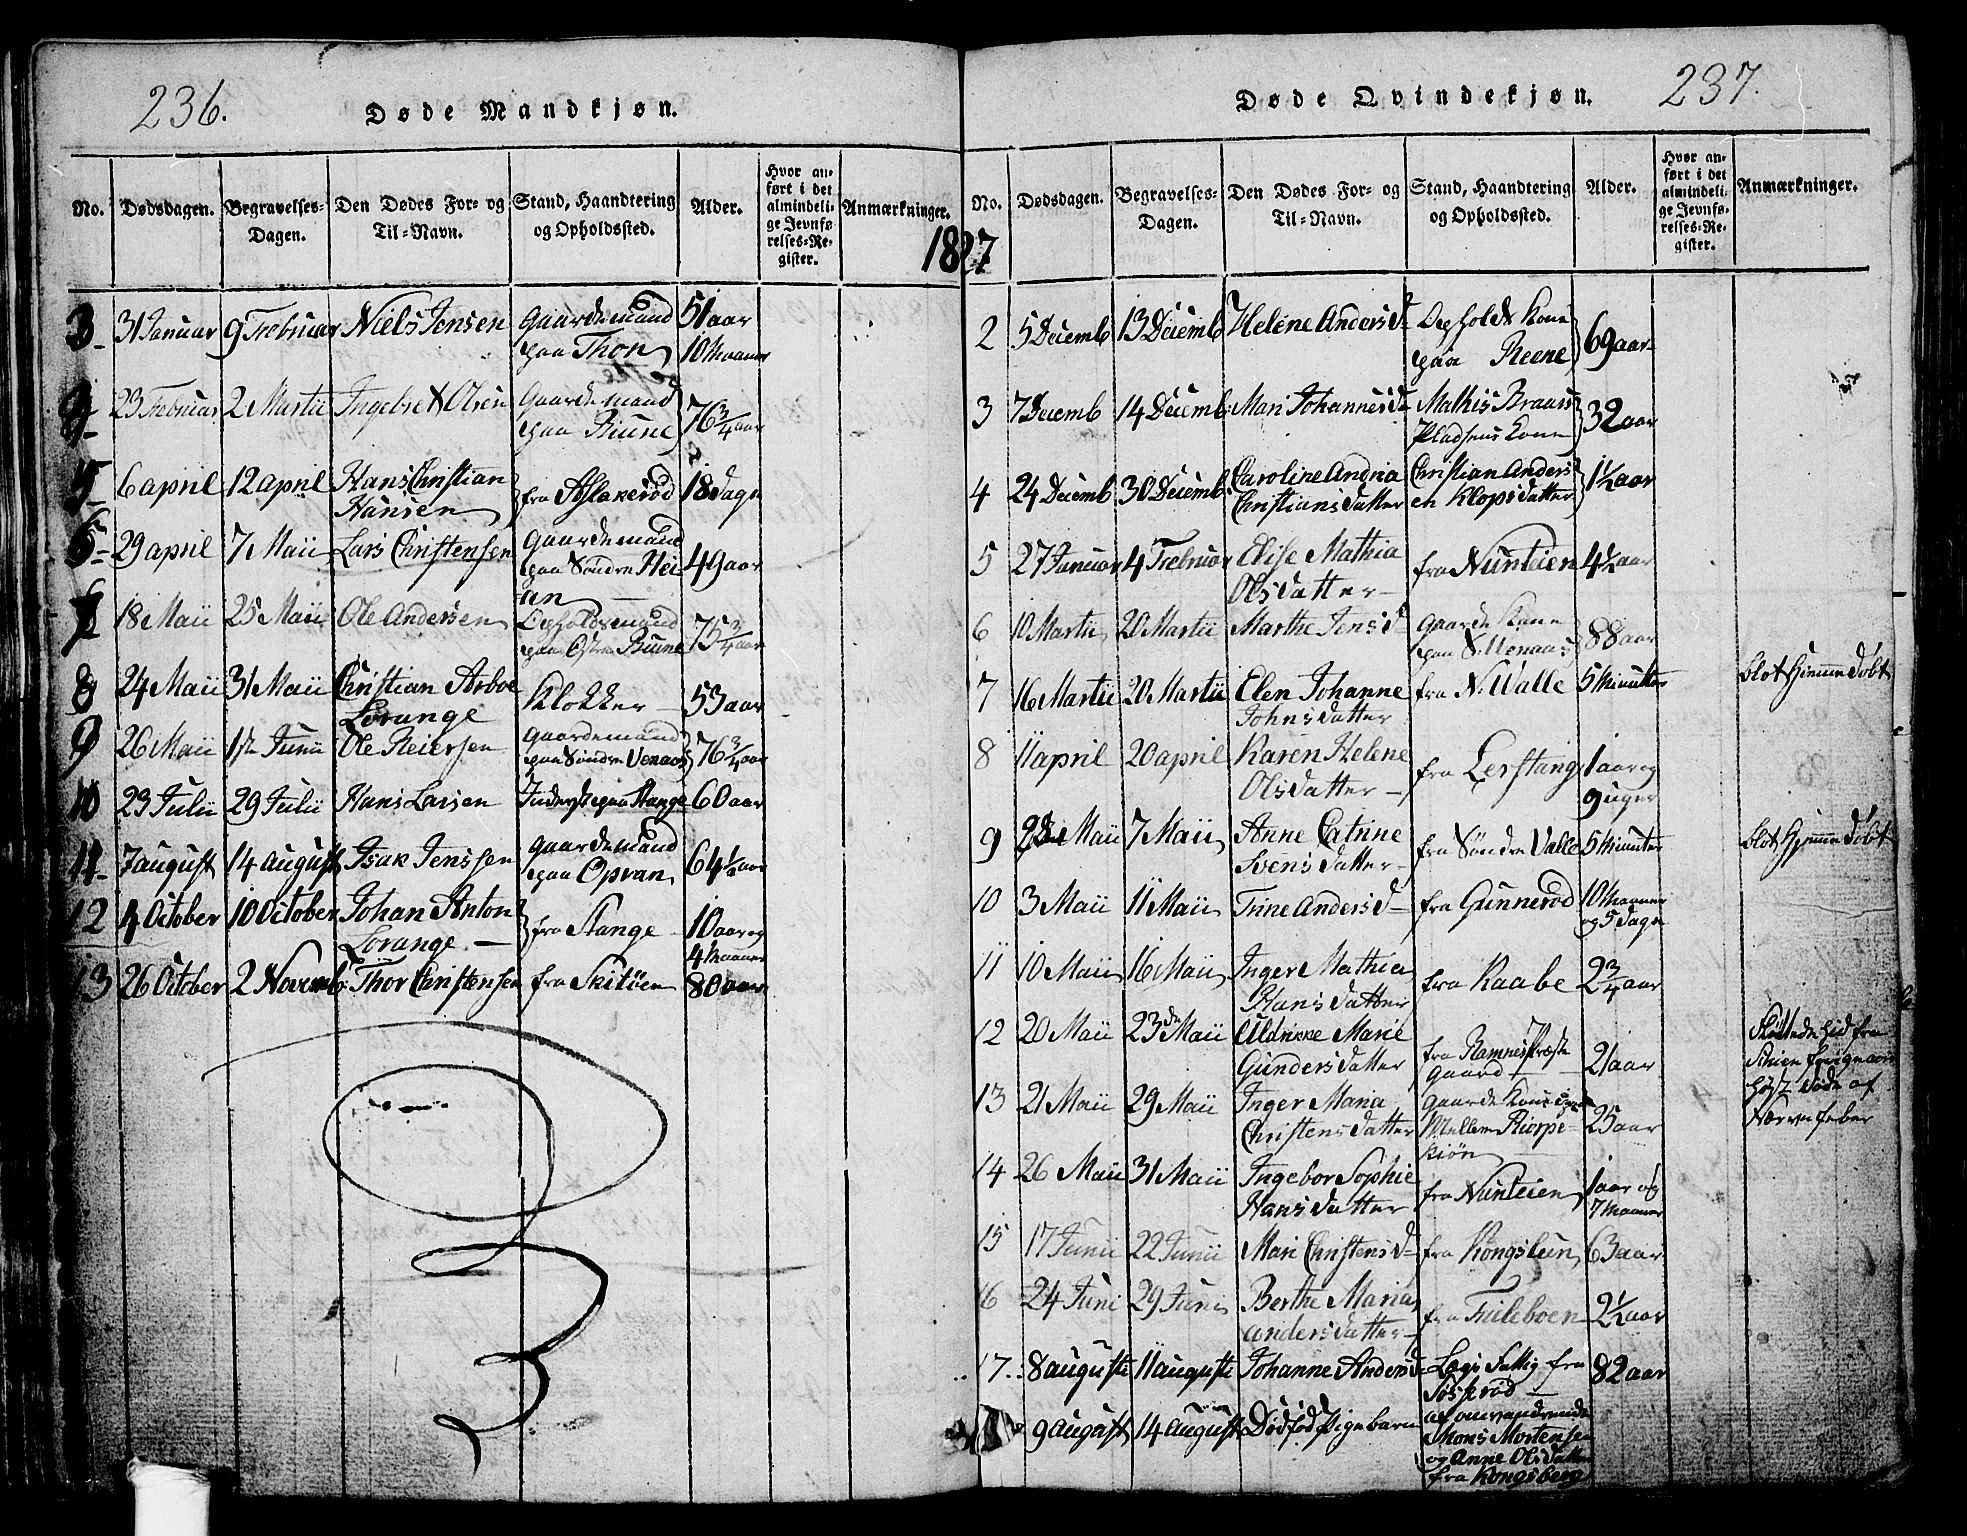 236.
Døde Mandkjøn.
No. Dødsdagen. Begravelses-Dagen. Den Dødes For- og Til-Navn. Stand, Haandtering og Opholdssted. Alder. Hvor anført i det almindelige Jevnførelses-Register. Anmærkninger.
1827
3 31 Januar 9 Februar Niels Jensen Gaardemand 51 aar
paa Thon 10 Maaner
23 Februar 2 Martii Olsen Gaardemand 76 3/4 aar
paa Biune
5 6 april 12 april Hans Christian fra Aslakerød 18 Dage
Hansen
6 29 april 7 Maii Lars Christensen Gaardemand 49 aar
paa Søndre Hei
an
7 18 Maii 25 Maii Ole Andersen Opholdsmand 75 3/4 aar
paa Østre Biune
8 24 Maii 31 Maii Christian Arboe Klokker 53 aar
Lorange
9 26 Maii 1ste Junii Ole Reiersen Gaardemand 76 3/4 aar
paa Søndre Venaas
10 23 Julii 29 Julii Hans Larsen Inderst paa Stange 60 aar
11 7 august 14 august Isak Jenssen Gaardemand 64 1/2 aar
paa Opvan
12 4 October 10 October Johan Anton fra Stange 10 aar og
Lorange 4 Maaner
13 26 October 2 Novemb: Thor Christensen fra Skitøen 80 aar
237.
Døde Qvindekjøn.
No. Dødsdagen. Begravelses-Dagen. Den Dødes For- og Til-Navn. Stand, Haandtering og Opholdssted. Alder. Hvor anført i det almindelige Jevnførelses-Register. Anmærkninger.
2 5 Decemb 13 Decemb Helene Andersd Opholds Kone 69 aar
paa Reene
3 7 Decemb 14 Decemb: Mari Johannesd Mathis Braars 32 aar
Pladsens Kone
4 24 Decemb 30 Decemb: Caroline Andria Christian Anders 1 1/2 aar
Christiansdatter en Klops datter
5 27 Januar 4 Februar Elise Mathia fra Nunteien 4 1/2 aar
Olsdatter
6 10 Martii 20 Martii Marthe Jensd Gaarde Kone 88 aar
paa S: Venaas
7 16 Martii 20 Martii Elen Johanne fra N: Walle 5 Minutter blot hjemmedøbt
Johnsdatter
8 11 april 20 april Karen Helene fra Lerstang 1 aar og
Olsdatter 9 uger
9 Maii 7 Maii Anne Catrine fra Søndre Valle 5 Minuter blot hjemmedøbt
Svensdatter
10 3 Maii 11 Maii Trine Andersd fra Gunnerød 10 Maaner
og 5 dage
11 10 Maii 16 Maii Inger Mathia fra Raabe 2 3/4 aar
Hansdatter
12 20 Maii 23de Maii Uldrikke Marie fra Ramnes Præste 21 aar
Gundersdatter gaard
hid fra
Skien
høst døde af
Nærvefeber
13 21 Maii 29 Maii Inger Maria Gaarde Kone 25 aar
Christensdatter Mellem Riorpe
kiøn
14 26 Maii 31 Maii Ingebor Sophie fra Nunteien 1 aar og
Hansdatter 7 Maaner
15 17 Junii 22 Junii Mari Christensd fra Kongsteen 63 aar
16 24 Juni 29 Juni Berthe Maria fra Fuleboen 2 1/2 aar
andersdatter
17 8 auguste 11 auguste Johanne Andersd Lægs Fattig fra 82 aar
9 August 14 August Dødfød Pigebarn af omvandrende
Mons Mortensen
og Anne Olsdatter
fra Kongsberg